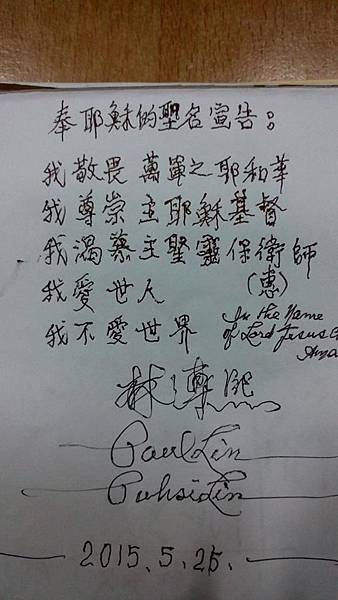 奉耶穌的聖名宣告：
我敬畏萬軍之耶和華
我尊崇主耶穌基督
我渴慕主聖靈保衛師
我愛世人 (惠)
我不愛世界 In the Name
of Lord Jesus
林
Paul Lin
Lin
2015.5.25.